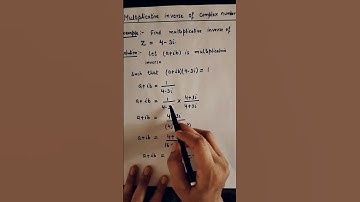 Multiplicative inverse of Complex number
Example:- Find multiplicative inverse of
Z = 4-3i
Solution:- Let (a+ib) is multiplicative
inverse
Such that (a+ib)(4-3i) = 1
a+ib = 1/4-3i
a+ib = 1/4-3i × 4+3i/4+3i
a+ib =
a+ib =
a+ib =